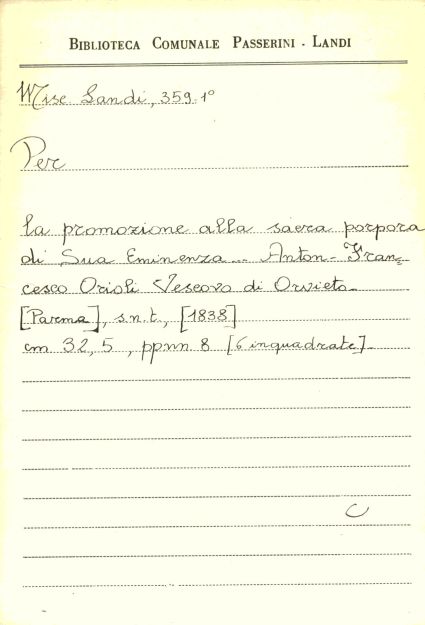 BIBLIOTECA COMUNALE PASSERINI - LANDI
Misc Landi, 359.1°
Per
la promozione alla sacra porpora
di Sua Eminenza... Anton-Fran=
cesco Orioli Vescovo di Orvieto.
[Parma], s.n.t., [1838]
cm 32,5, ppnn 8 [6 inquadrate].
C